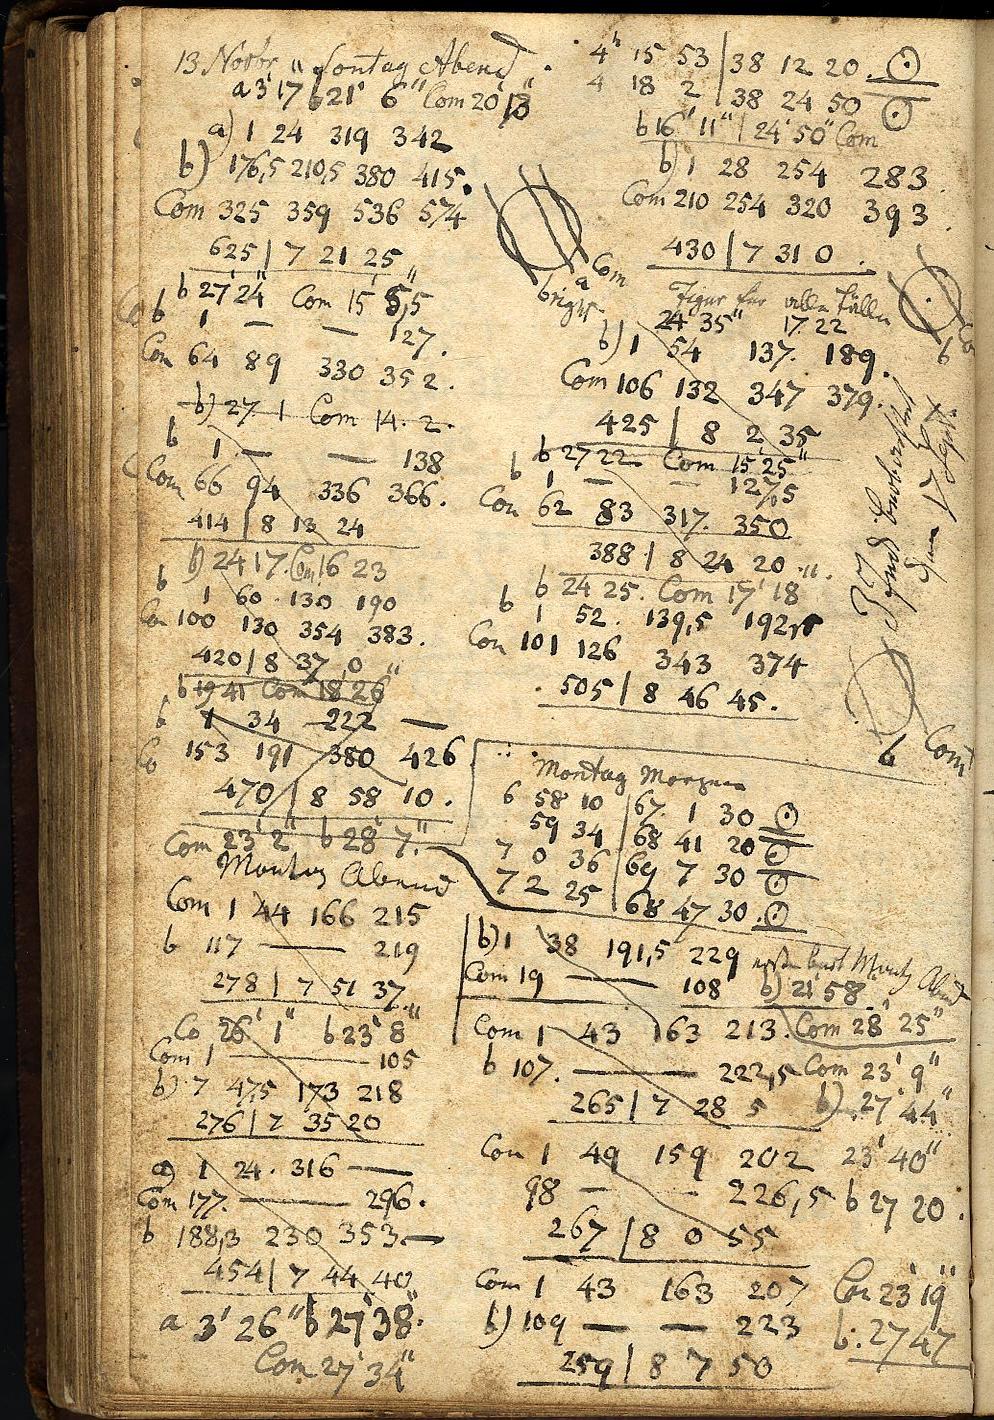 13 Novbr " Sontag Abend
a 3' 17" b 21' 6" Com 20' 18"
a) 1 24 319 342
b) 176,5 210,5 380 415.
Com 325 359 536 574
625 | 7 21 25
b 27' 24" Com 15' 5,5"
b 1 — — 127.
Com 64 89 330 352.
b) 27. 1 Com 14. 2.
b 1 — — 138
Com 66 94 336 366.
414 | 8 13 24
b) 24 17. Com 16 23
b 1 60. 130 190
Com 100 130 354 383.
420 | 8 37 0
b 19 41 Com 18' 26"
b 1 34 222 —
Co 153 191 380 426
470 | 8 58 10.
Com 23' 2" b 28' 7."
Montag Abend
Com 1 44 166 215
b 117 — 219
278 | 7 51 37
Co 26' 1" b 23' 8"
Com 1 — 105
b) 7 47,5 173 218
276 | 7 35 20
a) 1 24. 316 —
Com 177. — 296.
b 188,3 230 353 —
454 | 7 44 40
a 3' 26" b 27' 38".
Com 27' 34"
4h 15 53 | 38 12 20. ☉
4 18 2 | 38 24 50 ☉
b 16' 11" | 24' 50" Com
b) 1 28 254 283
Com 210 254 320 393
430 | 7 31 0.
a Com
b
Figur für alle Fälle
24 35" 17. 22
b) 1 54 137. 189.
Com 106 132 347 379.
425 | 8 2 35
b 27 22 Com 15' 25"
b 1 — — 127,5
Com 62 83 317. 350
388 | 8 24 20
b 24 25. Com 17' 18
b 1 52. 139,5 192,5
Com 101 126 343 374
505 | 8 46 45.
b
Com
b Com
Montag Morgen
6 58 10 | 67. 1 30 ☉
59 34 | 68 41 20 ☉
7 0 36 | 69 7 30 ☉
7 2 25 | 68 47 30. ☉
b) 1 38 191,5 229
Com 19 — 108
b) 21' 58"
Com 28' 25"
Com 1 43 163 213.
b 107. — 222,5
Com 23' 9"
b) 27' 44"
265 | 7 28 5
Com 1 49 159 202 23' 40"
98 — - 226,5 b 27 20.
267 | 8 0 55
Com 1 43 163 207 Com 23' 19"
b) 109 — — 223 b. 27 47
259 | 8 7 50